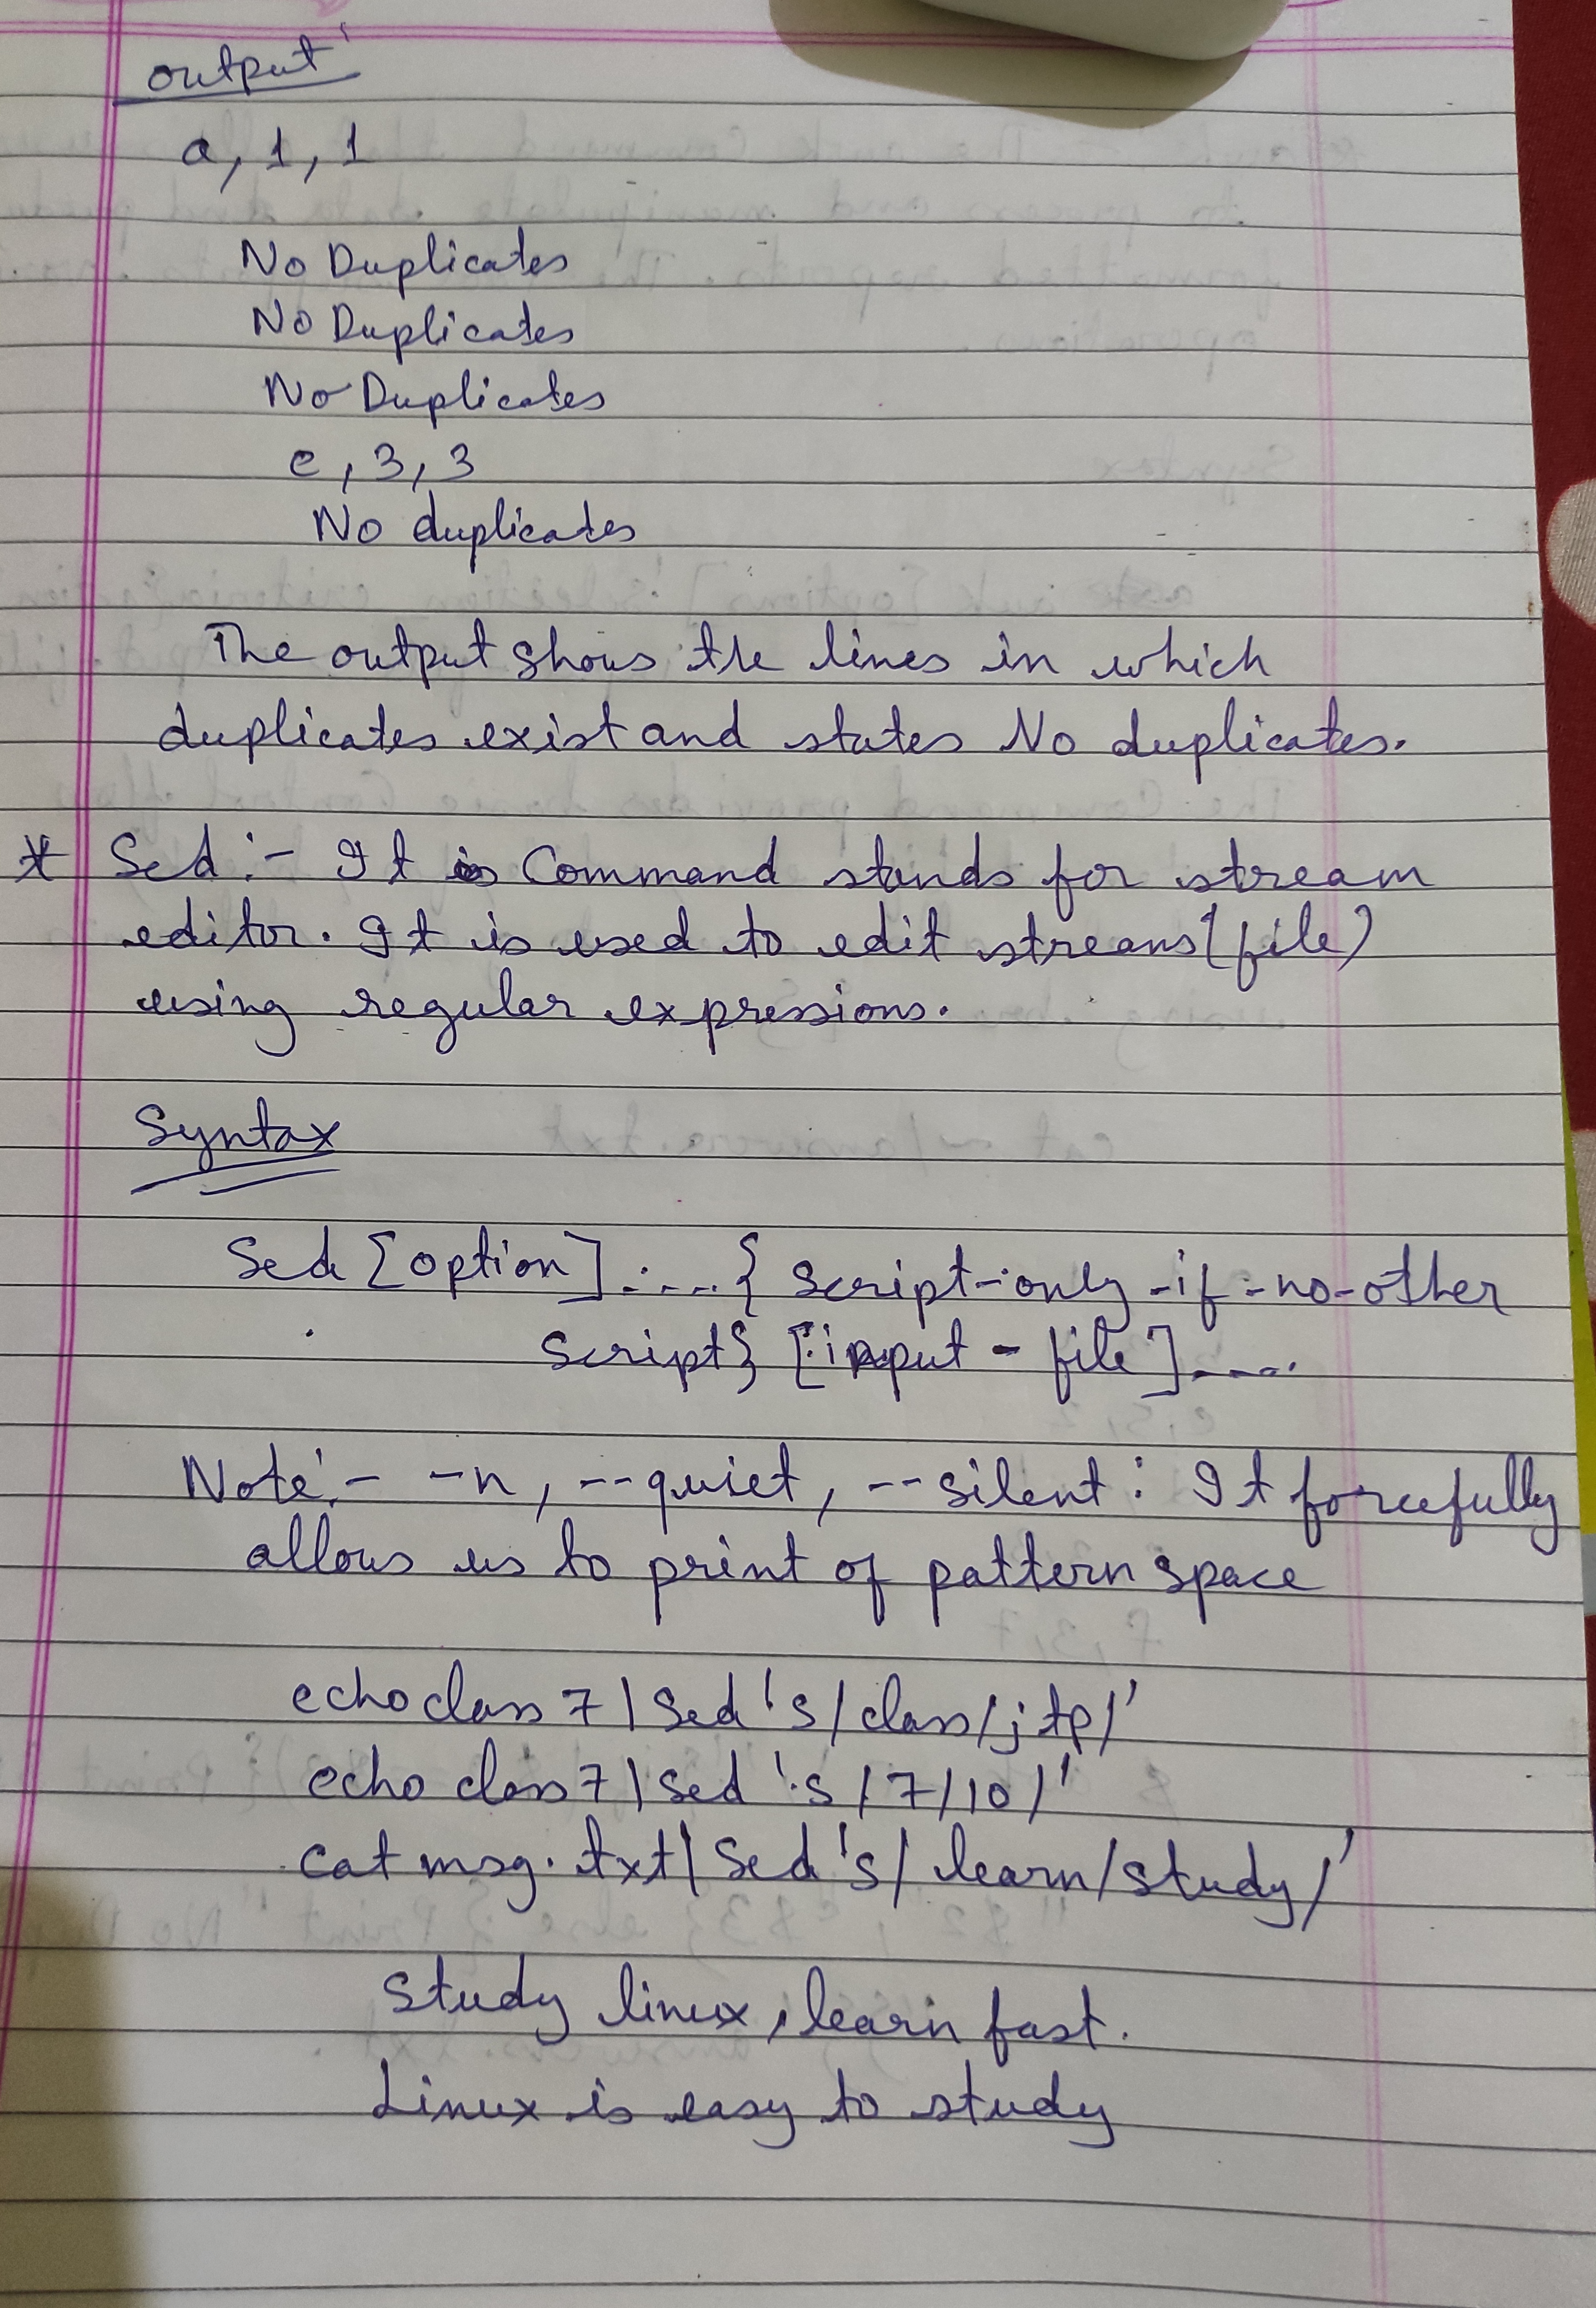 output
a, 1, 1
No Duplicates
No Duplicates
No Duplicates
e, 3, 3
No duplicates
The output shows the lines in which
duplicates exist and states No duplicates.
* Sed :- It is Command stands for stream
editor. It is used to edit streams (file)
using regular expressions.
Syntax
Sed [option].... { script-only-if-no-other
script} [input-file]....
Note:- -n, --quiet, --silent : It forcefully
allows us to print of pattern space
echo class 7 | sed 's/class/jtp/'
echo class7 | sed 's/7/10/'
cat msg.txt | Sed 's/learn/study/'
Study linux, learn fast.
Linux is easy to study